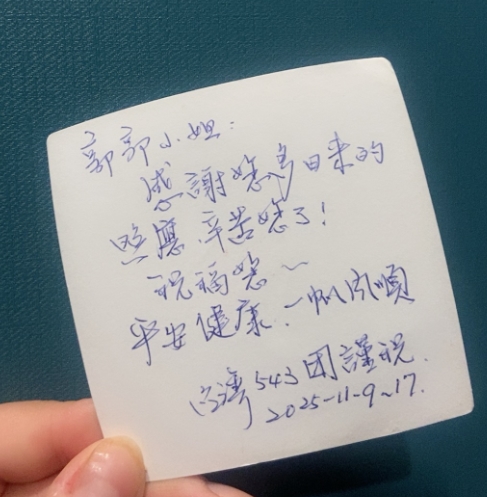 郭郭小姐：
感謝您多日來的
照應，辛苦您了！
祝福您～
平安健康、一帆風順
台灣543团謹祝.
2025-11-9~17.